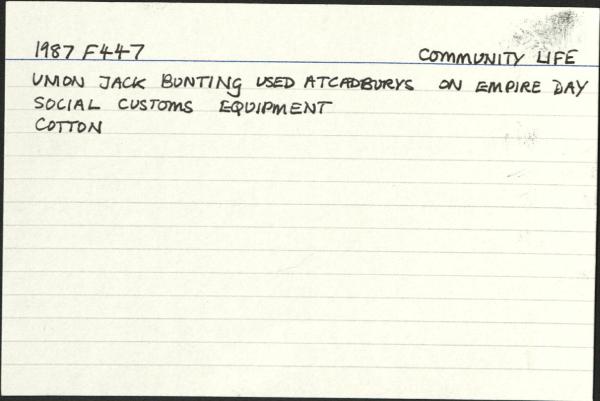 1987 F447 COMMUNITY LIFE
UNION JACK BUNTING USED AT CADBURYS ON EMPIRE DAY
SOCIAL CUSTOMS EQUIPMENT
COTTON